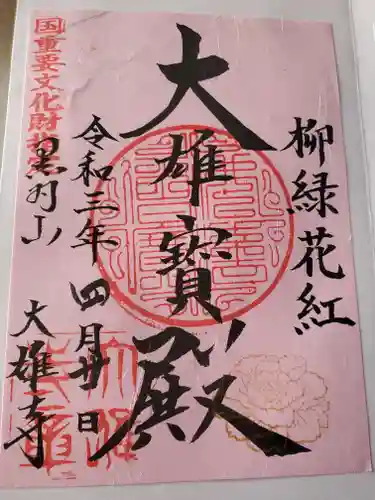 柳緑花紅
大雄寳殿
令和三年四月廿日
国重要文化財指定
黒羽山
大雄寺